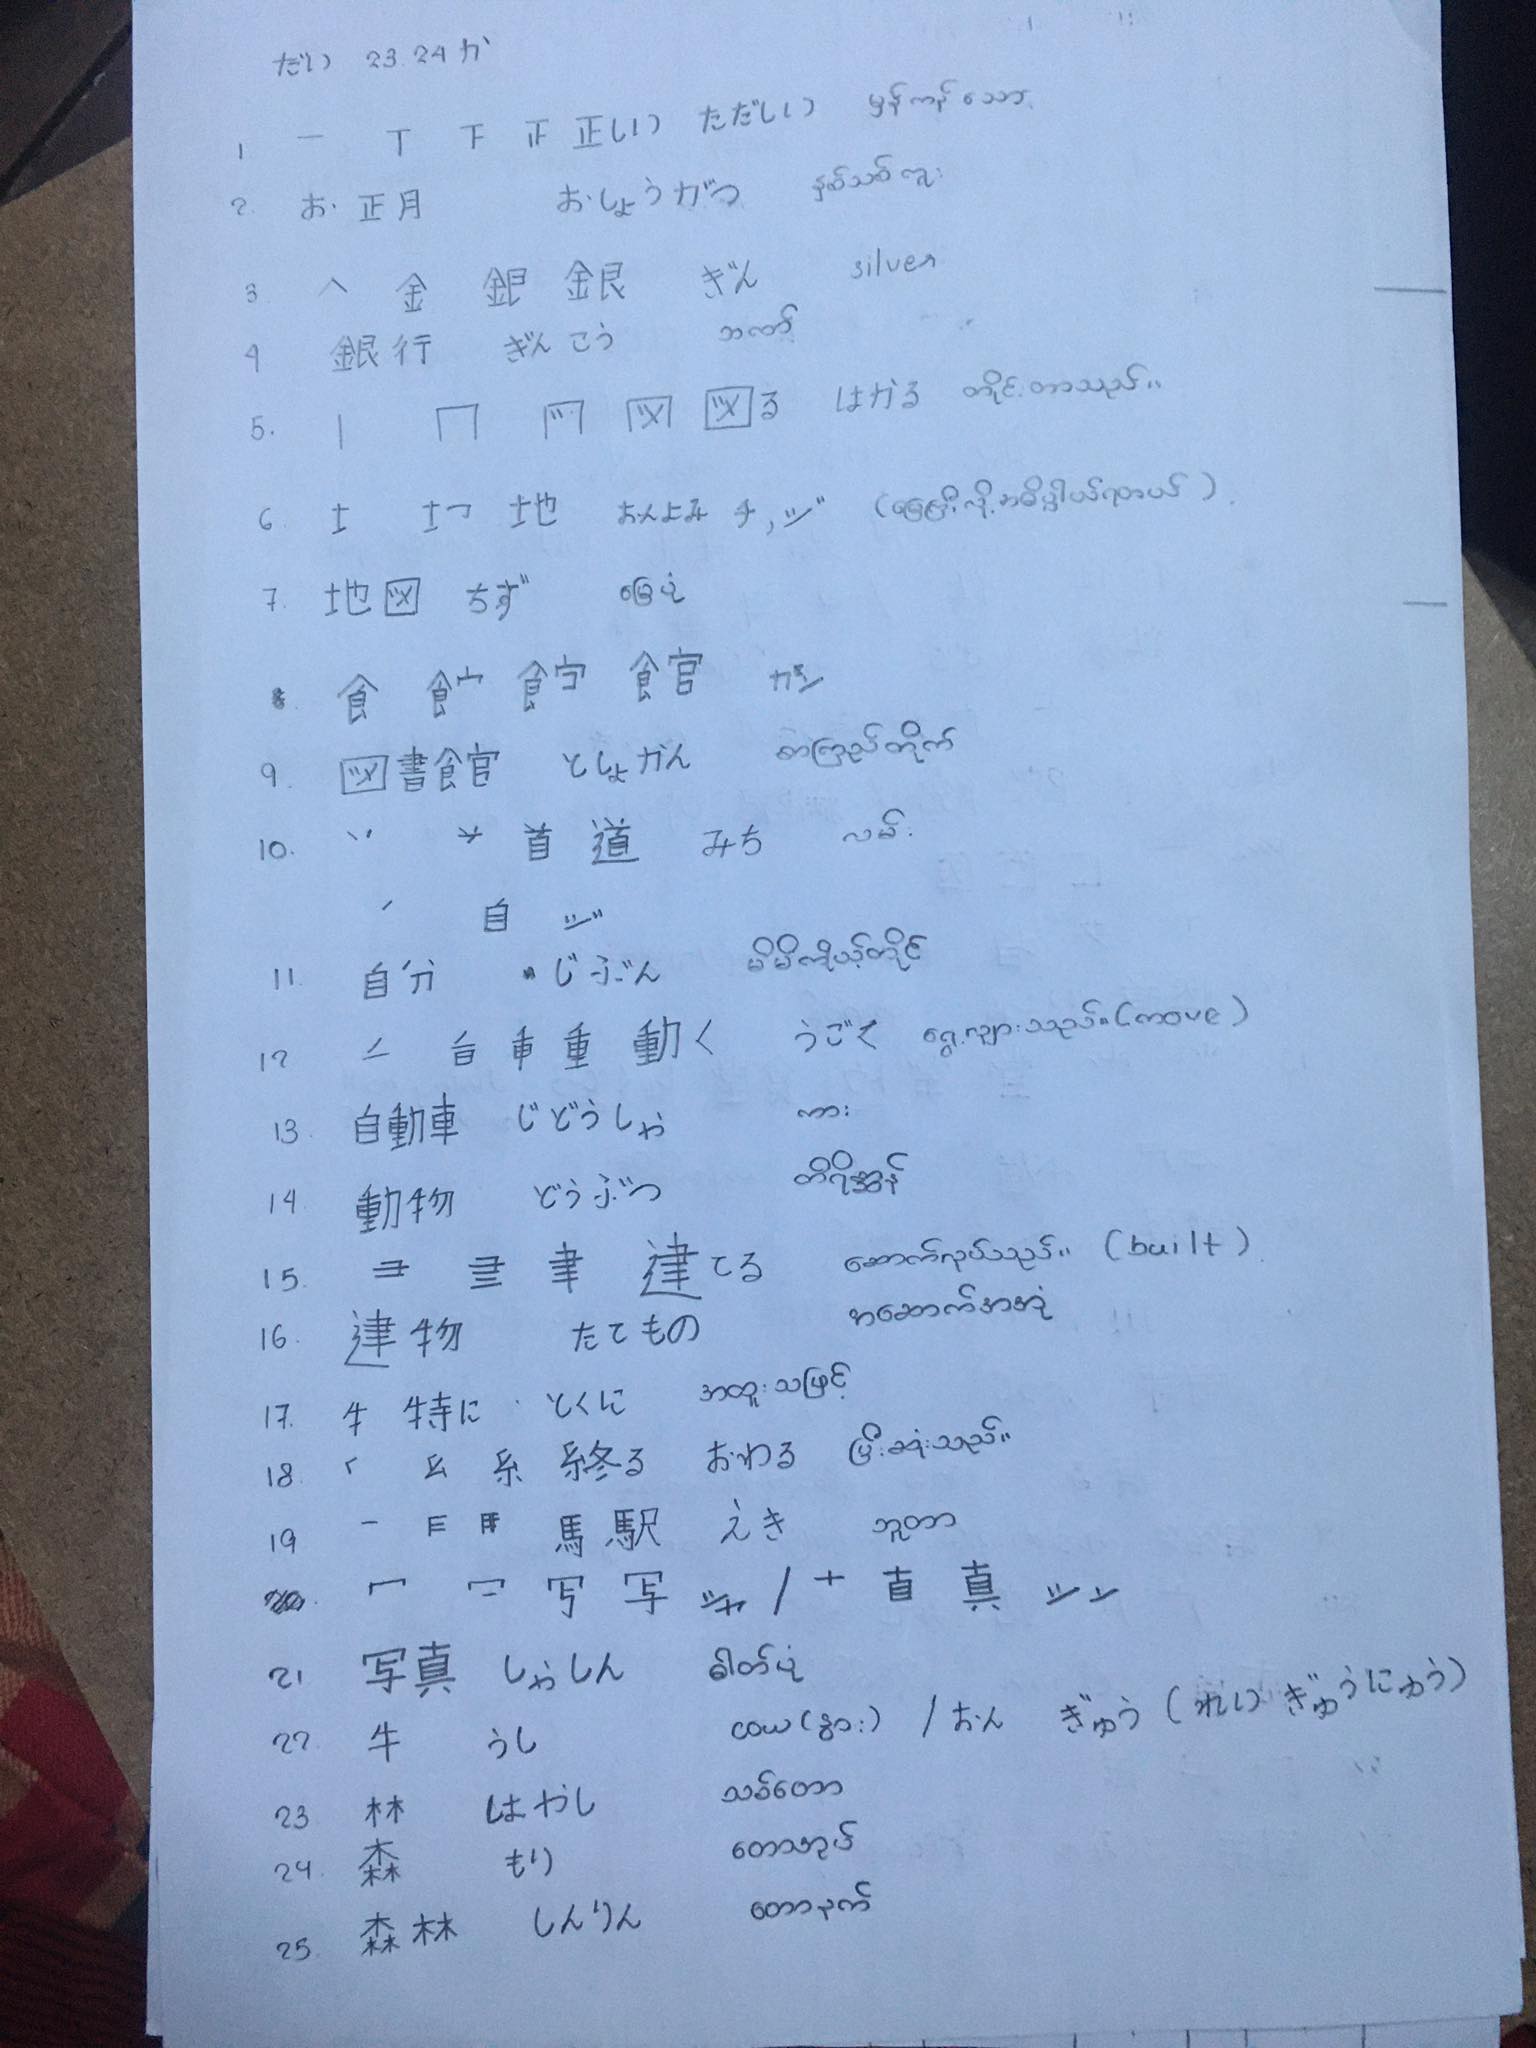 だい 23.24 か
1 一 丅 下 正 正しい ただしい မှန်ကန်သော
2. お正月 おしょうがつ နှစ်သစ်ကူး
3. 𠆢 金 銀 銀 ぎん silver
4 銀行 ぎんこう ဘဏ်
5. 丨 冂 図 図る はかる တိုင်းတာသည်။
6 土 地 おんよみ チ,ジ (မြေကြီးလို့အဓိပ္ပါယ်ရတယ်).
7. 地図 ちず မြေပုံ
8. 食 館 カン
9. 図書館 としょかん စာကြည့်တိုက်
10. 首 道 みち လမ်း
自 ジ
11 自分 じぶん မိမိကိုယ်တိုင်
12 重 動く うごく ရွေ့လျားသည်။ (move)
13. 自動車 じどうしゃ ကား
14 動物 どうぶつ တိရိစ္ဆာန်
15. 聿 建てる ဆောက်လုပ်သည်။ (built)
16. 建物 たてもの အဆောက်အအုံ
17. 牛 特に とくに အထူးသဖြင့်
18. 糸 終る おわる ပြီးဆုံးသည်။
19 馬 駅 えき ဘူတာ
20. 冖 写 写 シャ / 十 直 真 シン
21 写真 しゃしん ဓါတ်ပုံ
22. 牛 うし cow (နွား) / おん ぎゅう (れい ぎゅうにゅう)
23 林 はやし သစ်တော
24. 森 もり တောအုပ်
25. 森林 しんりん တောနက်